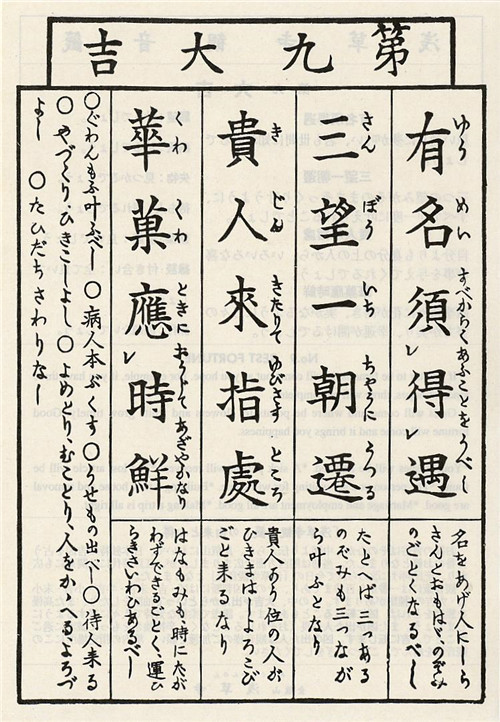 第九大吉
ゆう めい すべからくあふことをうべし
有名須レ得レ遇
名をあげ人にしら
さんとおもはゞ、のぞみ
のごとくなるべし
さん ぼう いち ちやうに うつる
三望一朝遷
たとへば三つある
のぞみも三つなが
ら叶ふとなり
き じん きたりて ゆびさす ところ
貴人來指處
貴人あり位の人が
ひきまはしよろこび
ごと来るなり
くわ くわ ときに おうじて あざやかな
華菓應レ時鮮
はなもみも、時にたが
わずできるごとく、運ひ
らきさいわひあるべし
○ぐわんもふ叶ふべし ○病人本ぷくす ○うせもの出べし ○待人来る
○やづくり、ひきこしよし ○よめとり、むことり、人をかゝへるよろづ
よし ○たひだちさわりなし